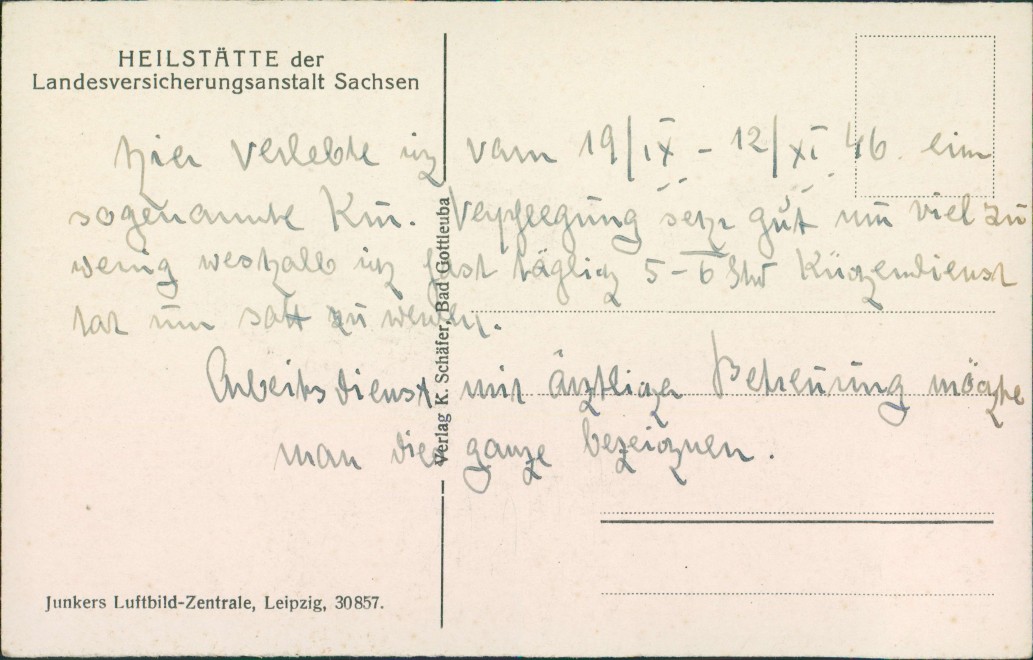 HEILSTÄTTE der
Landesversicherungsanstalt Sachsen
Hier verlebte ich vom 19/IX - 12/XI 46. eine
sogenannte Kur. Verpflegung sehr gut nur viel zu
wenig weshalb ich fast täglich 5-6 Std Küchendienst
tat um satt zu werden.
Arbeitsdienst mit ärztlicher Betreuung möchte
man die ganze bezeichnen.
Verlag K. Schäfer, Bad Gottleuba
Junkers Luftbild-Zentrale, Leipzig, 30857.